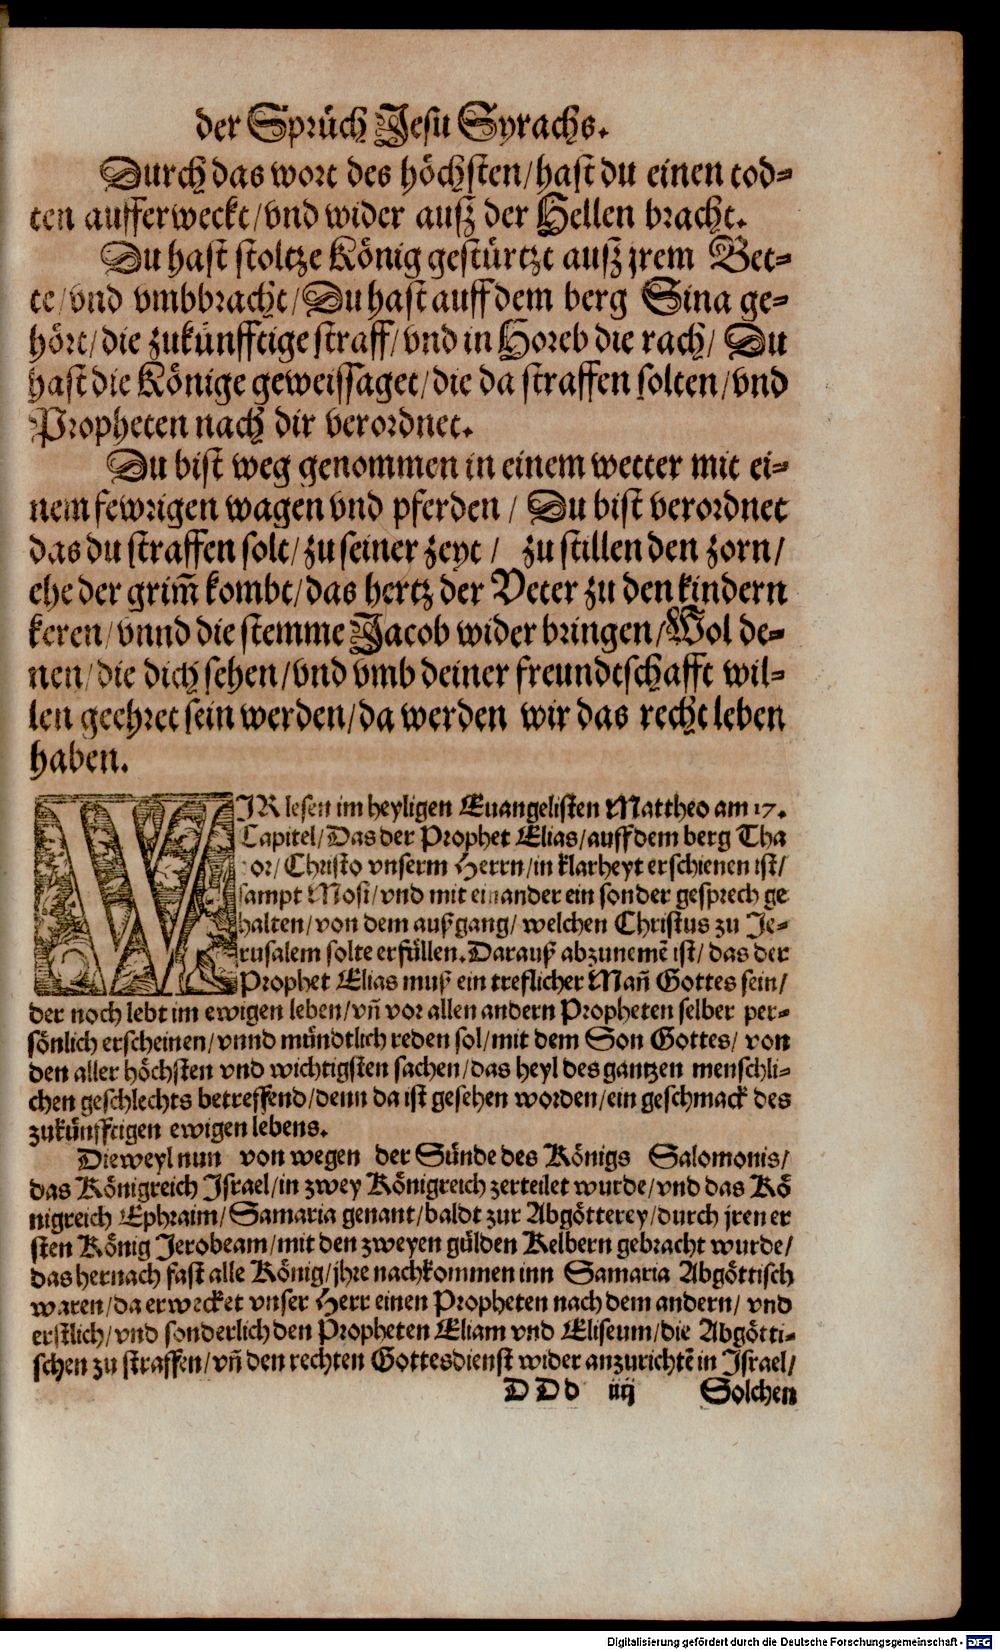 der Sprüch Jesu Syrachs.
Durch das wort des höchsten/ hast du einen tod-
ten aufferweckt/ vnd wider auß der Hellen bracht.
Du hast stoltze König gestürtzt auß jrem Bet-
te/ vnd vmbbracht/ Du hast auff dem berg Sina ge-
hört/ die zukünfftige straff/ vnd in Horeb die rach/ Du
hast die Könige geweissaget/ die da straffen solten/ vnd
Propheten nach dir verordnet.
Du bist weg genommen in einem wetter mit ei-
nem fewrigen wagen vnd pferden / Du bist verordnet
das du straffen solt/ zu seiner zeyt / zu stillen den zorn/
ehe der grim̃ kombt/ das hertz der Veter zu den kindern
keren/ vnnd die stemme Jacob wider bringen/ Wol de-
nen/ die dich sehen/ vnd vmb deiner freundtschafft wil-
len geehret sein werden/ da werden wir das recht leben
haben.
WJR lesen im heyligen Euangelisten Mattheo am 17.
Capitel/ Das der Prophet Elias/ auff dem berg Tha
or/ Christo vnserm Herrn/ in klarheyt erschienen ist/
sampt Mosi/ vnd mit einander ein sonder gesprech ge
halten/ von dem außgang/ welchen Christus zu Je-
rusalem solte erfüllen. Darauß abzunemẽ ist/ das der
Prophet Elias muß ein treflicher Mañ Gottes sein/
der noch lebt im ewigen leben/ vñ vor allen andern Propheten selber per-
sönlich erscheinen/ vnnd mündtlich reden sol/ mit dem Son Gottes/ von
den aller höchsten vnd wichtigsten sachen/ das heyl des gantzen menschli-
chen geschlechts betreffend/ denn da ist gesehen worden/ ein geschmack des
zukünfftigen ewigen lebens.
Dieweyl nun von wegen der Sünde des Königs Salomonis/
das Königreich Jsrael/ in zwey Königreich zerteilet wurde/ vnd das Kö
nigreich Ephraim/ Samaria genant/ baldt zur Abgötterey/ durch jren er
sten König Jerobeam/ mit den zweyen gülden Kelbern gebracht wurde/
das hernach fast alle König/ jhre nachkommen inn Samaria Abgöttisch
waren/ da erwecket vnser Herr einen Propheten nach dem andern/ vnd
erstlich/ vnd sonderlich den Propheten Eliam vnd Eliseum/ die Abgötti-
schen zu straffen/ vñ den rechten Gottesdienst wider anzurichtẽ in Jsrael/
DDd iiij Solchen
Digitalisierung gefördert durch die Deutsche Forschungsgemeinschaft - DFG